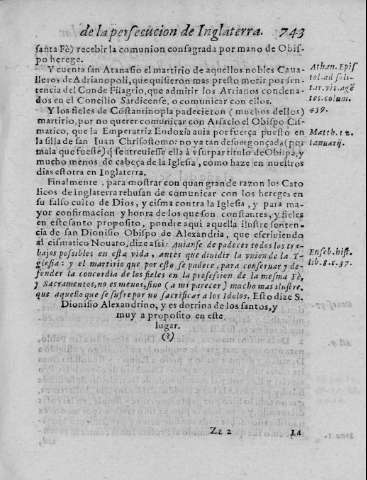 de la persecucion de Inglaterra. 743
santa Fè) recibir la comunion consagrada por mano de Obis-
po herege.
Y cuenta san Atanasio el martirio de aquellos nobles Caua-
lleros de Adrianopoli, que quisieron mas presto morir por sen-
tencia del Conde Filagrio, que admitir los Arrianos condena-
dos en el Concilio Sardicense, o comunicar con ellos.
Athan. Epis
tol. ad soli-
tar. vit. agē
tes. colum.
439.
Y los fieles de Costantinopla padecieron (muchos dellos)
martirio, por no querer comunicar con Arsacio el Obispo Cis-
matico, que la Emperatriz Eudoxia auia por fuerça puesto en
la silla de san Iuan Chrisostomo: no ya tan desuergonçada (por
mala que fuesse) q̃ se atreuiesse ella à vsurpar titulo de Obispa, y
mucho menos de cabeça de la Iglesia, como haze en nuestros
dias estotra en Inglaterra.
Matth. 12.
Ianuarij.
Finalmente, para mostrar con quan grande razon los Cato
licos de Inglaterra rehusan de comunicar con los hereges en
su falso culto de Dios, y cisma contra la Iglesia, y para ma-
yor confirmacion y honra de los que son constantes, y fieles
en este santo proposito, pondre aqui aquella ilustre senten-
cia de san Dionisio Obispo de Alexandria, que escriuiendo
al cismatico Nouato, dize assi: Auiase de padecer todos los tra-
bajos possibles en esta vida, antes que diuidir la vnion de la I-
glesia: y el martirio que por esto se padece, para conseruar y de-
fender la concordia de los fieles en la profession de la mesma Fè,
y Sacramentos, no es menos, sino (a mi parecer) mucho mas ilustre,
que aquello que se sufre por no sacrificar a los Idolos. Esto dize S.
Dionisio Alexandrino, y es dotrina de los santos, y
muy a proposito en este
lugar.
(?)
Euseb. hist.
lib. 6. c. 37.
Zz 2
La